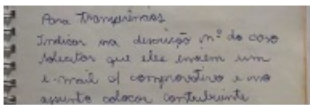 Para Transferências
Indicar na descrição nº do caso
Solicitar que eles enviem um
e-mail c/ comprovativo e no
assunto colocar contribuinte